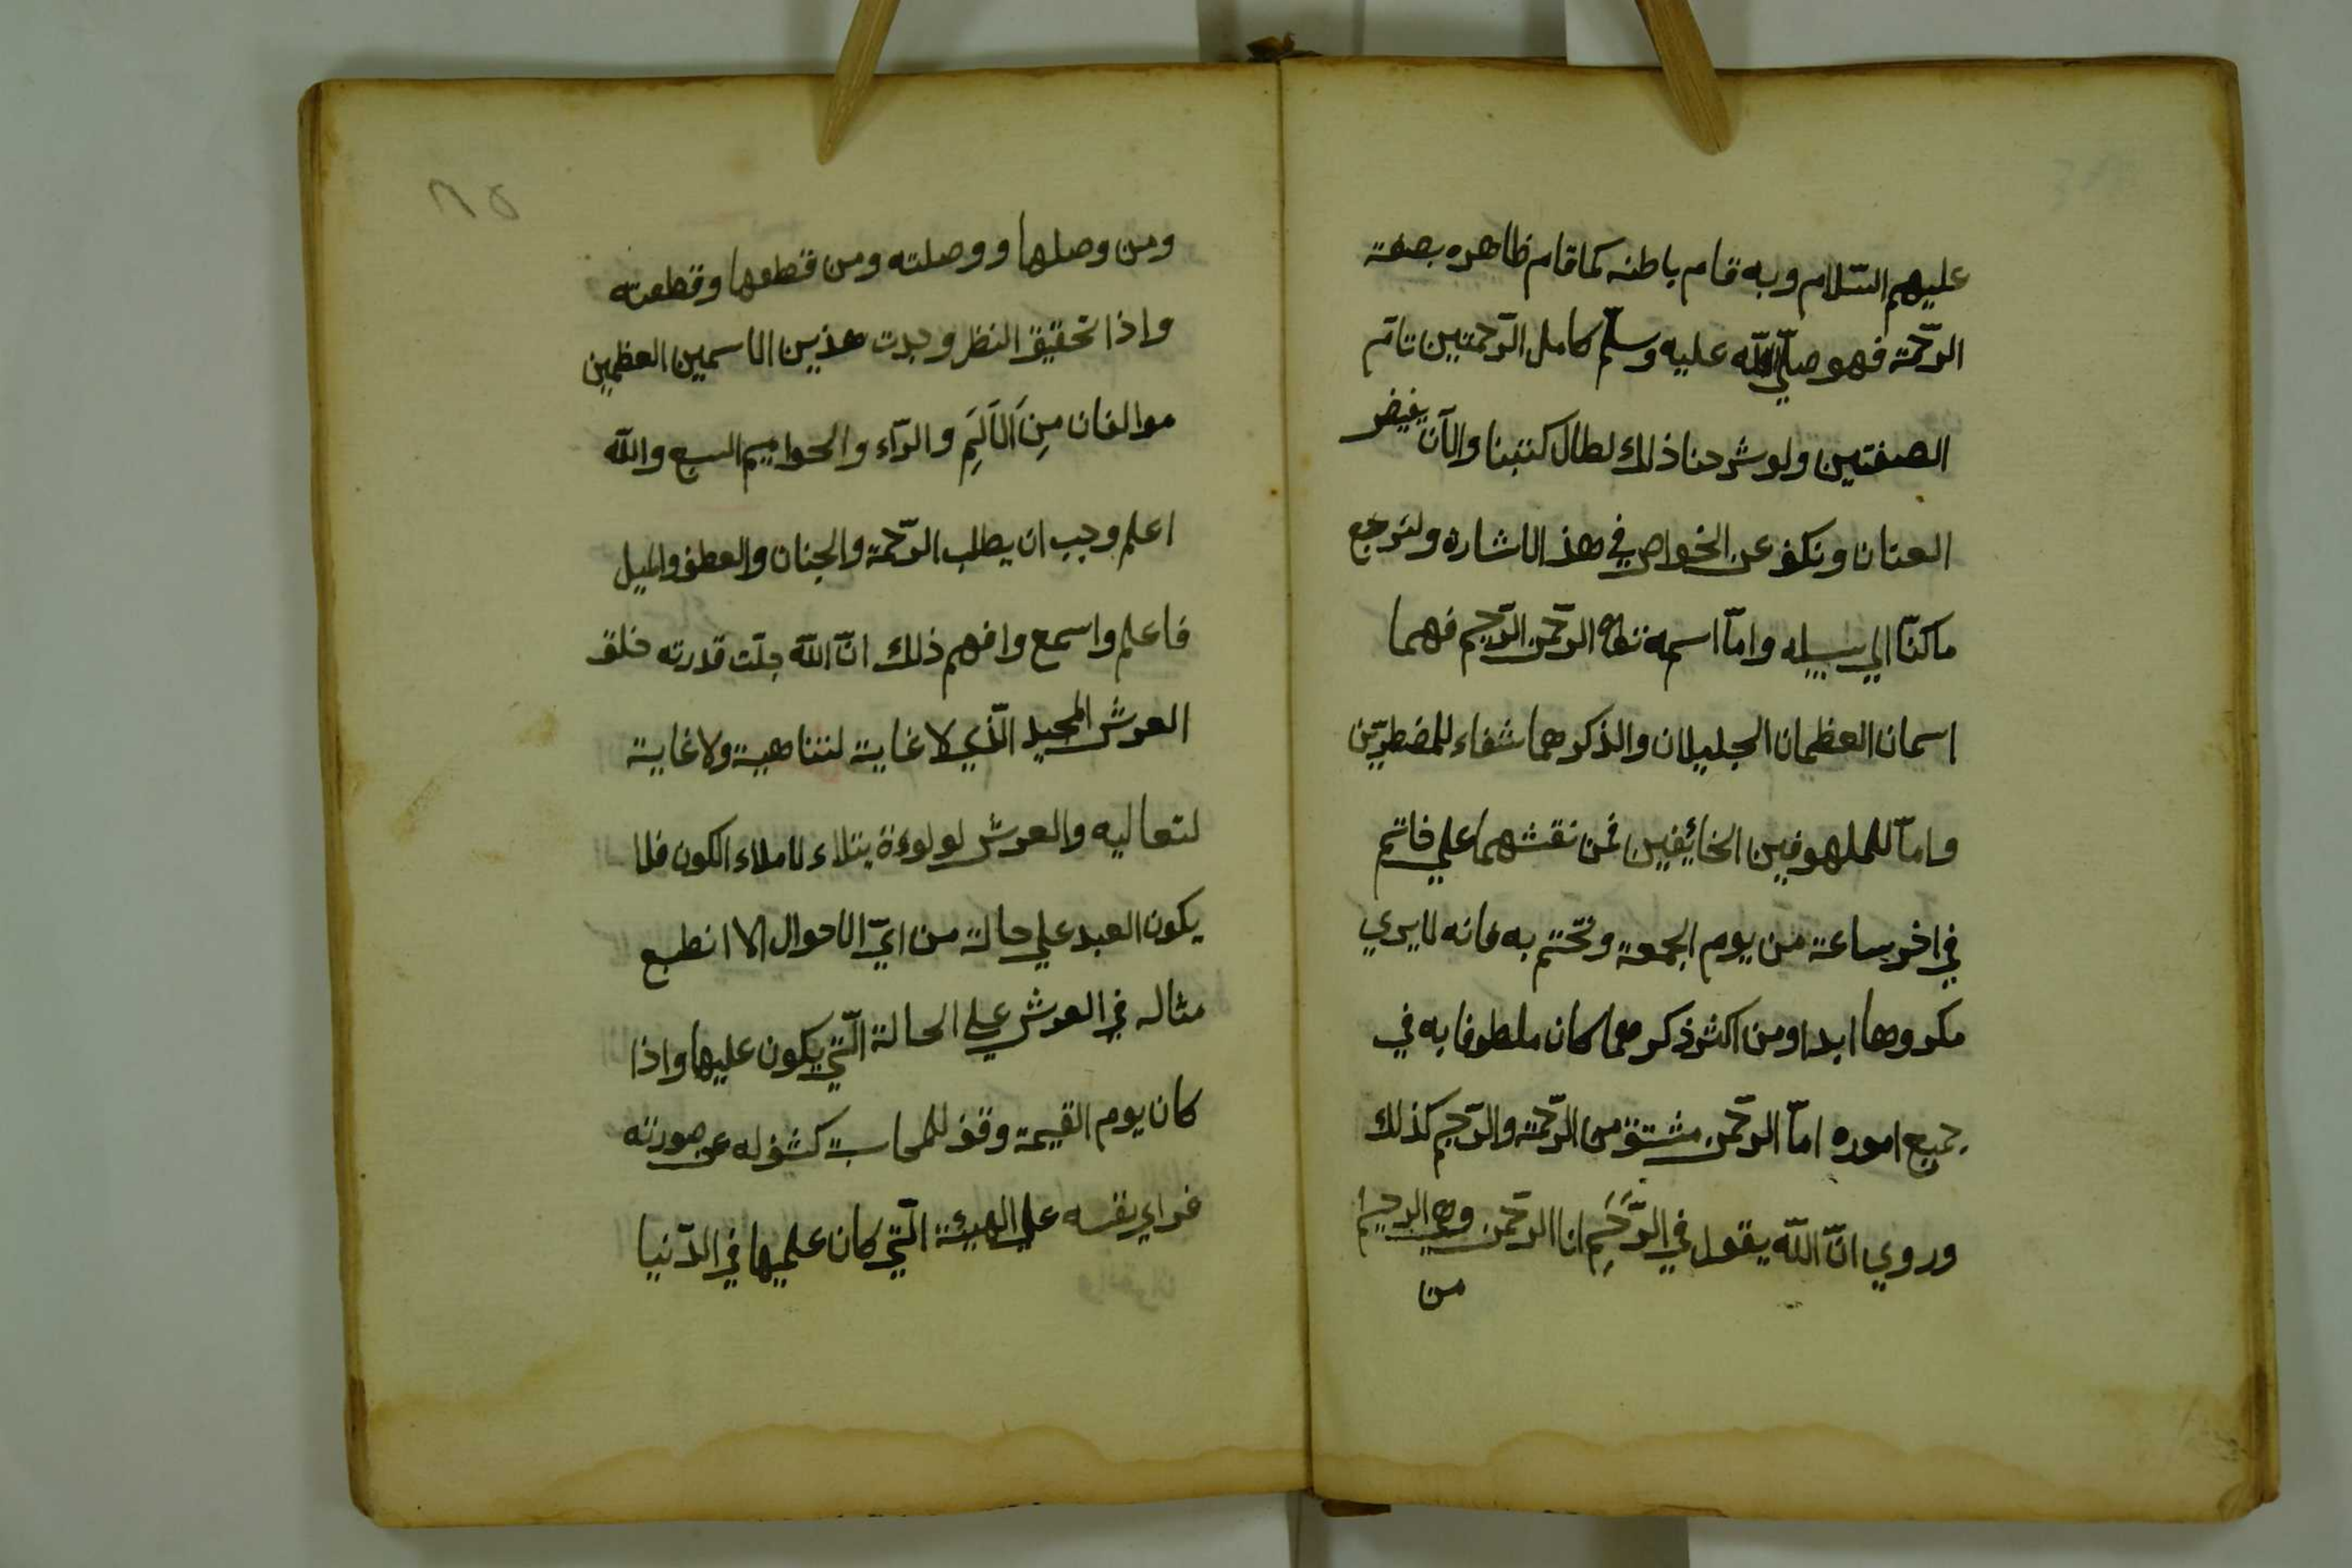 عليهم السّلام وبه قام باطنه كما قام ظاهره بصفة
الرّحمة فهو صلّي اللّه عليه وسلّم كامل الرّحمتين تامّ
الصفتين ولو شرحنا ذلك لطال كتبنا والآن يفيض
العنان ونكف عن الخواص في هذ الاشاره ولنرجع
ما كنّا الي سبيله وامّا اسمه الرّحمن الرّحيم فهما
اسمان العظمان الجليلان والذكر هما شفاء للمضطرّين
وامّا للملهوفين الخائفين فمن نقشهما علي خاتم
في اخر ساعة من يوم الجمعة وتختم به فانه لا يري
مكروها ابدا ومن اكثر ذكرهما كان ملطوفا به في
جميع اموره امّا الرّحمن مشتق من الرّحمة والرّحيم كذلك
وروي انّ اللّه يقول في الرَّحِمِ انا الرّحمن وهي الرحيم
من
٨٥
ومن وصلها ووصلته ومن قطعها وقطعته
واذا تحقيق النظر وجدت هذين الاسمين العظمين
موالفان مِنَ الَالَمِ والرّاء والحواميم السبع واللّه
اعلم وجب ان يطلب الرّحمة والجنان والعطف والميل
فاعلم واسمع وافهم ذلك انّ اللّه جلّت قدرته خلق
العرش المجيد الّذي لا غاية لتناهية ولا غاية
لتعاليه والعرش لولوءة يتلاء لاملاء الكون فلا
يكون العبد علي حالة من ايّ الاحوال الا انطبع
مثاله في العرش علي الحالة الّتي يكون عليها واذا
كان يوم القيمة وقف للمحاسبة كشف له عن صورته
فراي نفسه علي الهيئة الّتي كان عليها في الدّنيا